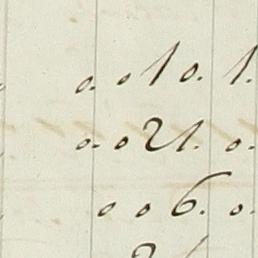 o. o 10. 1.
o. o 21. o.
o o 6. o.